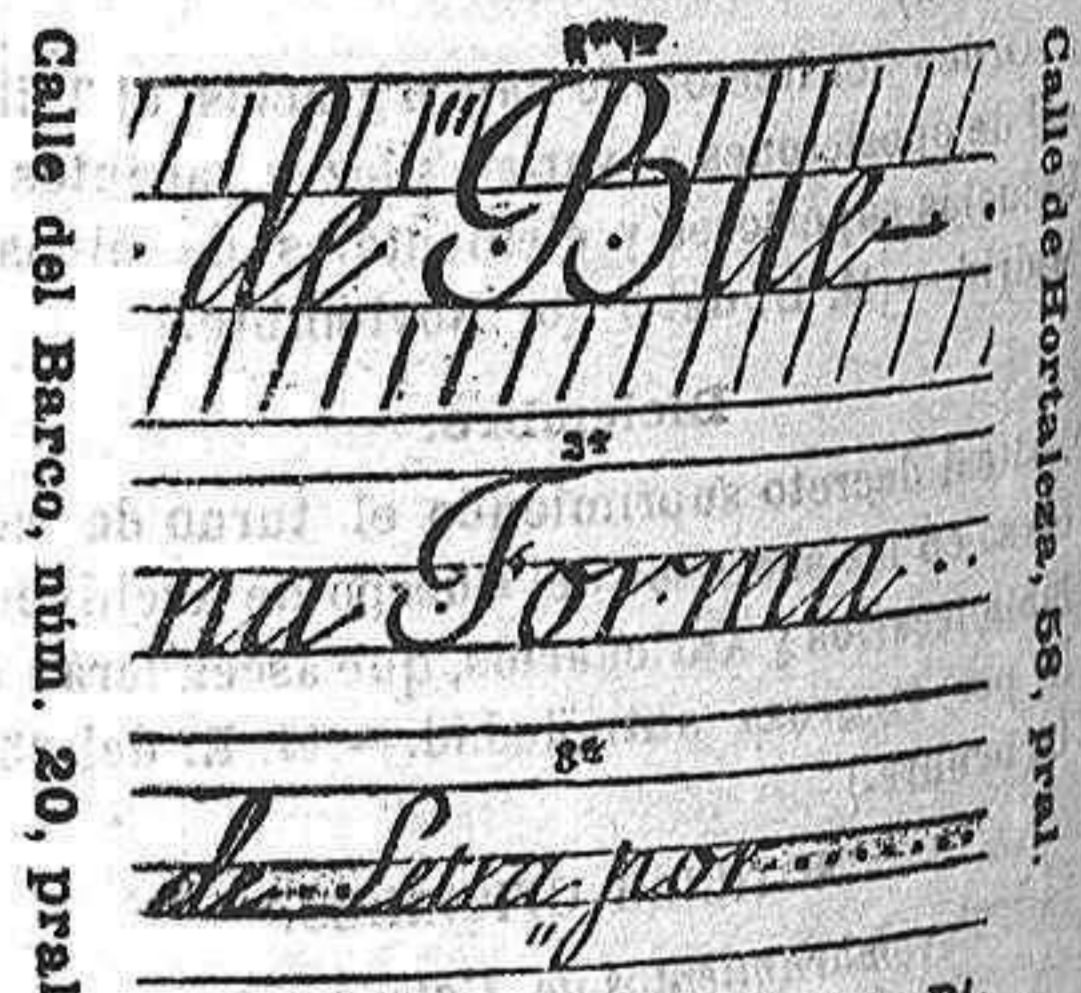 Calle del Barco, núm. 20, pral
de "Bue-
2ª
na Forma
8ª
de Letra por
"
Calle de Hortaleza, 58, pral.